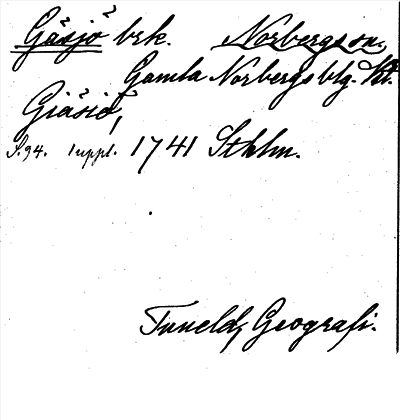 Gåsjö brk. Norbergs sn,
Gamla Norbergs blg. Vstm.
Giåsiö,
S. 94. 1 uppl. 1741 Sthlm.
Tuneld, Geografi.